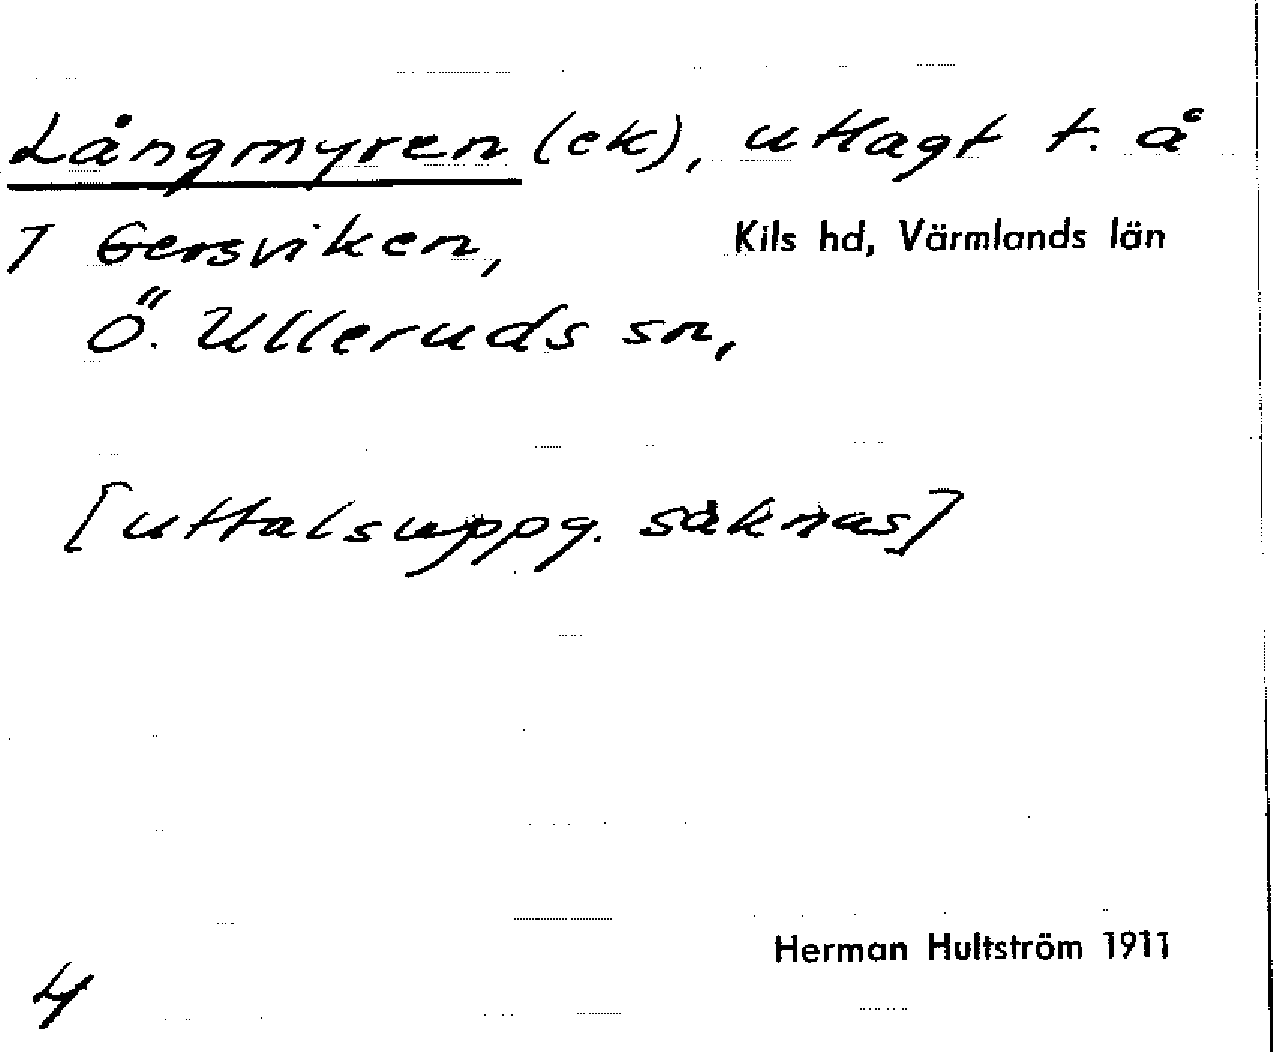 Långmyren (ek), utlagt t. å
7 Gersviken, Kils hd, Värmlands län
Ö. Ulleruds sn,
[uttalsuppg. saknas]
Herman Hultström 1911
4